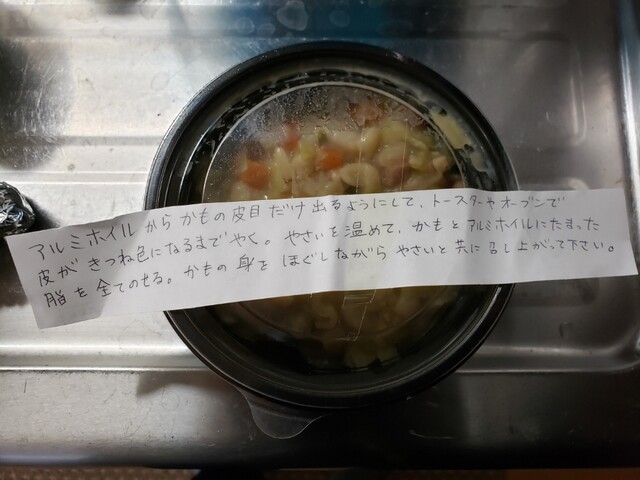 アルミホイルからかもの皮目だけ出るようにして、トースターやオーブンで
皮がきつね色になるまでやく。やさいを温めて、かもとアルミホイルにたまった
脂を全てのせる。かもの身をほぐしながらやさいと共に召し上がって下さい。